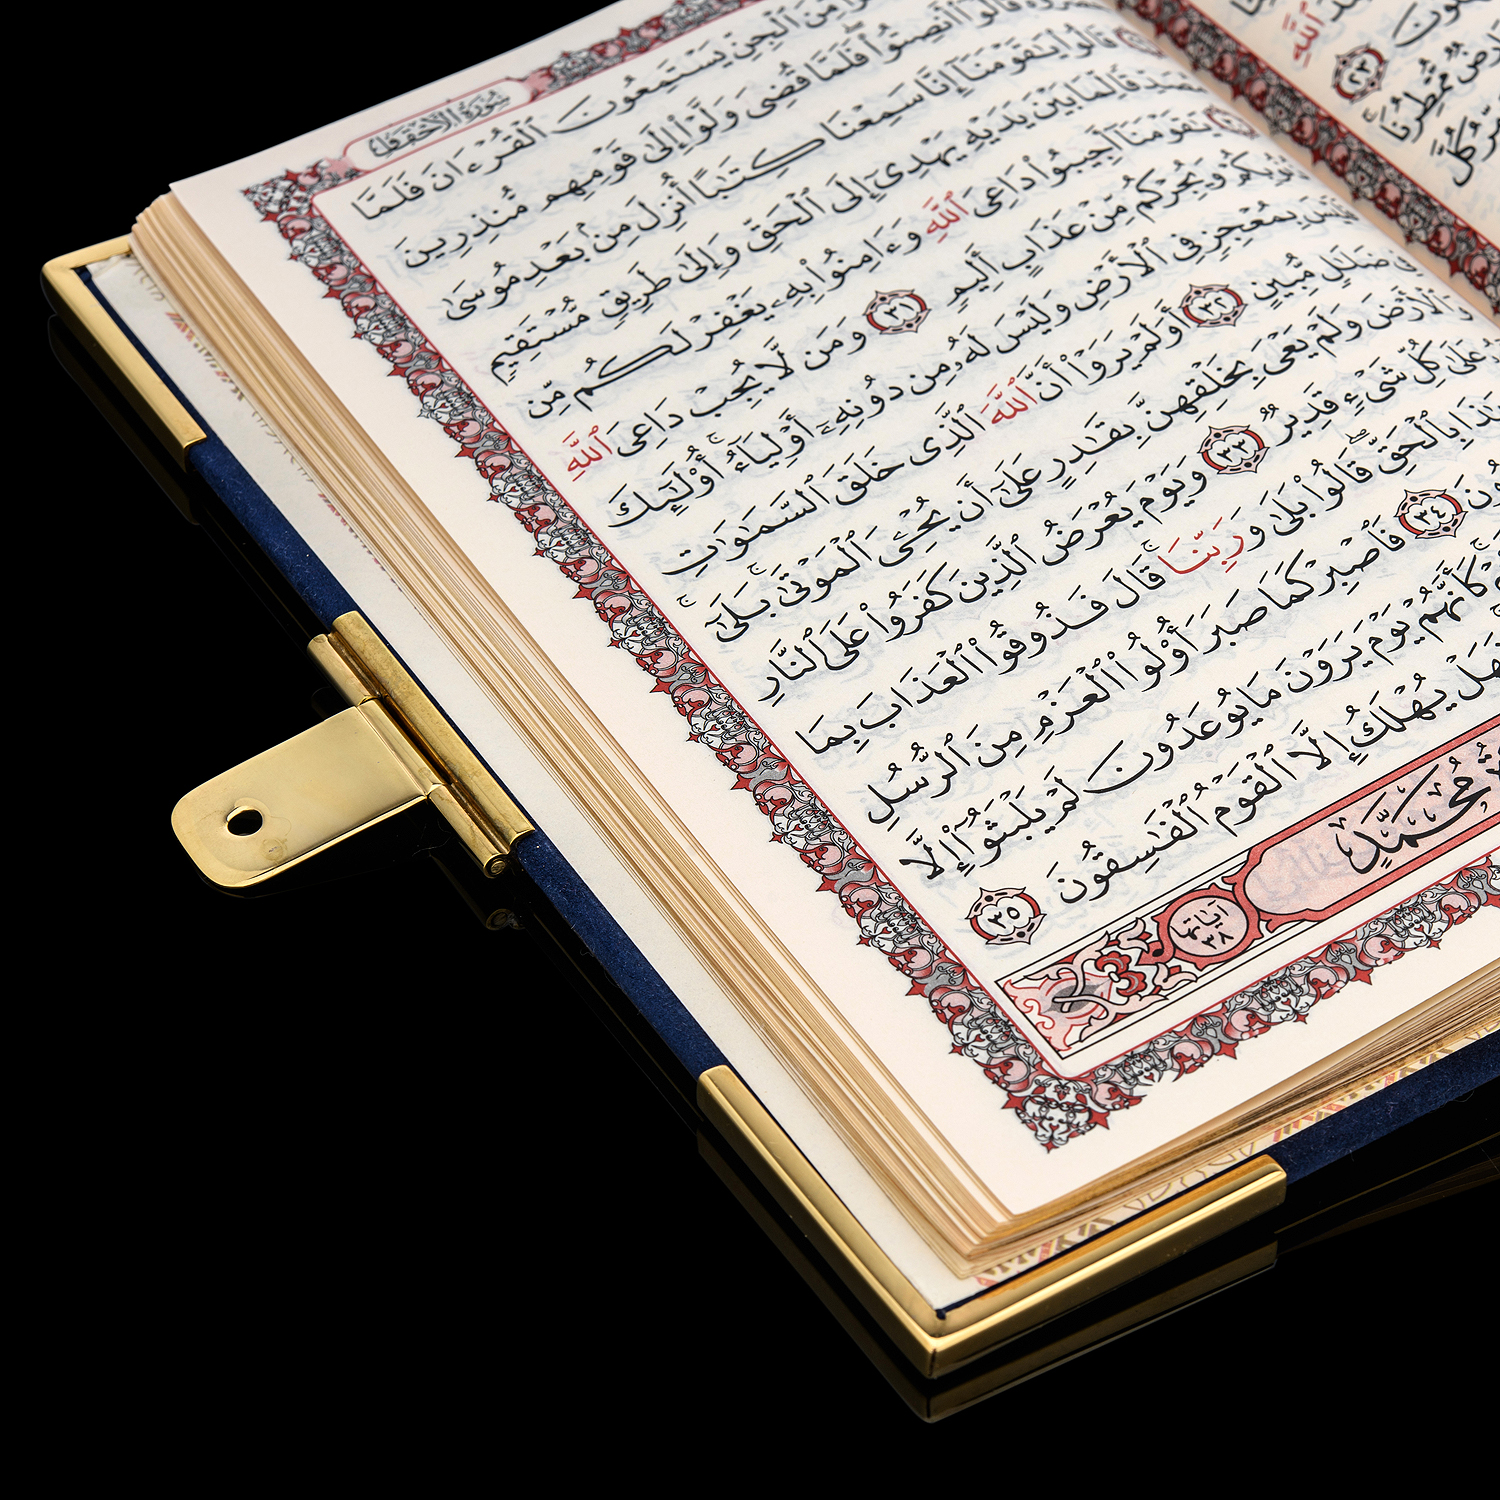 ٱللَّهِ
٢٣
مُّمْطِرُنَا
كُلَّ
سُورَةُ الأَحْقَافِ
مِّنَ ٱلْجِنِّ يَسْتَمِعُونَ ٱلْقُرْءَانَ فَلَمَّا
قَالُوٓا۟ أَنصِتُوا۟ ۖ فَلَمَّا قُضِىَ وَلَّوْا۟ إِلَىٰ قَوْمِهِم مُّنذِرِينَ
قَالُوا۟ يَٰقَوْمَنَآ إِنَّا سَمِعْنَا كِتَٰبًا أُنزِلَ مِنۢ بَعْدِ مُوسَىٰ
مُصَدِّقًا لِّمَا بَيْنَ يَدَيْهِ يَهْدِىٓ إِلَى ٱلْحَقِّ وَإِلَىٰ طَرِيقٍ مُّسْتَقِيمٍ
يَٰقَوْمَنَآ أَجِيبُوا۟ دَاعِىَ ٱللَّهِ وَءَامِنُوا۟ بِهِۦ يَغْفِرْ لَكُم مِّن
وَيُجِرْكُم مِّنْ عَذَابٍ أَلِيمٍ ٣١ وَمَن لَّا يُجِبْ دَاعِىَ ٱللَّهِ
فَلَيْسَ بِمُعْجِزٍ فِى ٱلْأَرْضِ وَلَيْسَ لَهُۥ مِن دُونِهِۦٓ أَوْلِيَآءُ ۚ أُو۟لَٰٓئِكَ
فِى ضَلَٰلٍ مُّبِينٍ ٣٢ أَوَلَمْ يَرَوْا۟ أَنَّ ٱللَّهَ ٱلَّذِى خَلَقَ ٱلسَّمَٰوَٰتِ
وَٱلْأَرْضَ وَلَمْ يَعْىَ بِخَلْقِهِنَّ بِقَٰدِرٍ عَلَىٰٓ أَن يُحْـِۧىَ ٱلْمَوْتَىٰ ۚ بَلَىٰٓ ۚ
عَلَىٰ كُلِّ شَىْءٍ قَدِيرٌ ٣٣ وَيَوْمَ يُعْرَضُ ٱلَّذِينَ كَفَرُوا۟ عَلَى ٱلنَّارِ
بِٱلْحَقِّ ۖ قَالُوا۟ بَلَىٰ وَرَبِّنَا ۚ قَالَ فَذُوقُوا۟ ٱلْعَذَابَ بِمَا
٣٤ فَٱصْبِرْ كَمَا صَبَرَ أُو۟لُوا۟ ٱلْعَزْمِ مِنَ ٱلرُّسُلِ
كَأَنَّهُمْ يَوْمَ يَرَوْنَ مَا يُوعَدُونَ لَمْ يَلْبَثُوٓا۟ إِلَّا
يُهْلَكُ إِلَّا ٱلْقَوْمُ ٱلْفَٰسِقُونَ ٣٥
مُحَمَّدٍ
آيَاتُهَا ٣٨